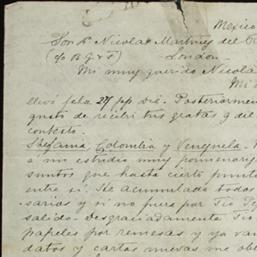 Mexico
Sor Dn Nicolas Martinez del
c/o B G & F London
Mi muy querido Nicola
Mi
llevó fcha 27 pp
gusto de recibir tus gratas
contesto.
Stefania, Colombia y Venezuela.
a mi estudio muy pormenoriz
suntos que hasta cierto punto
entre si. He acumulado todos
sarios y si no fuera por
salido. Desgraciadamente Tio
papeles por remesas y ya van
datos y cartas nuevas me obl